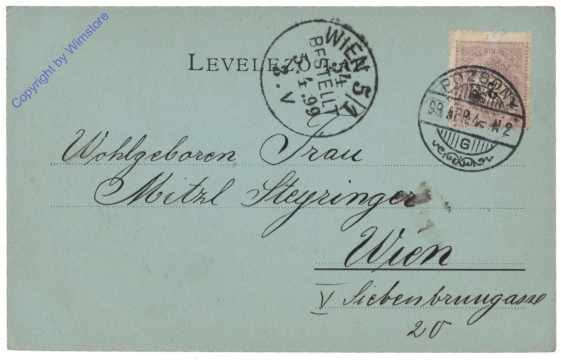 Copyright by Wimstore
LEVELEZŐ-LAP
WIEN 5/1
54
BESTELLT
5. 4. 99
V
POZSONY
99 APR. 4. N 2
G
Wohlgeboren Frau
Mitzl Steyringer
Wien
V Siebenbrunngasse
20